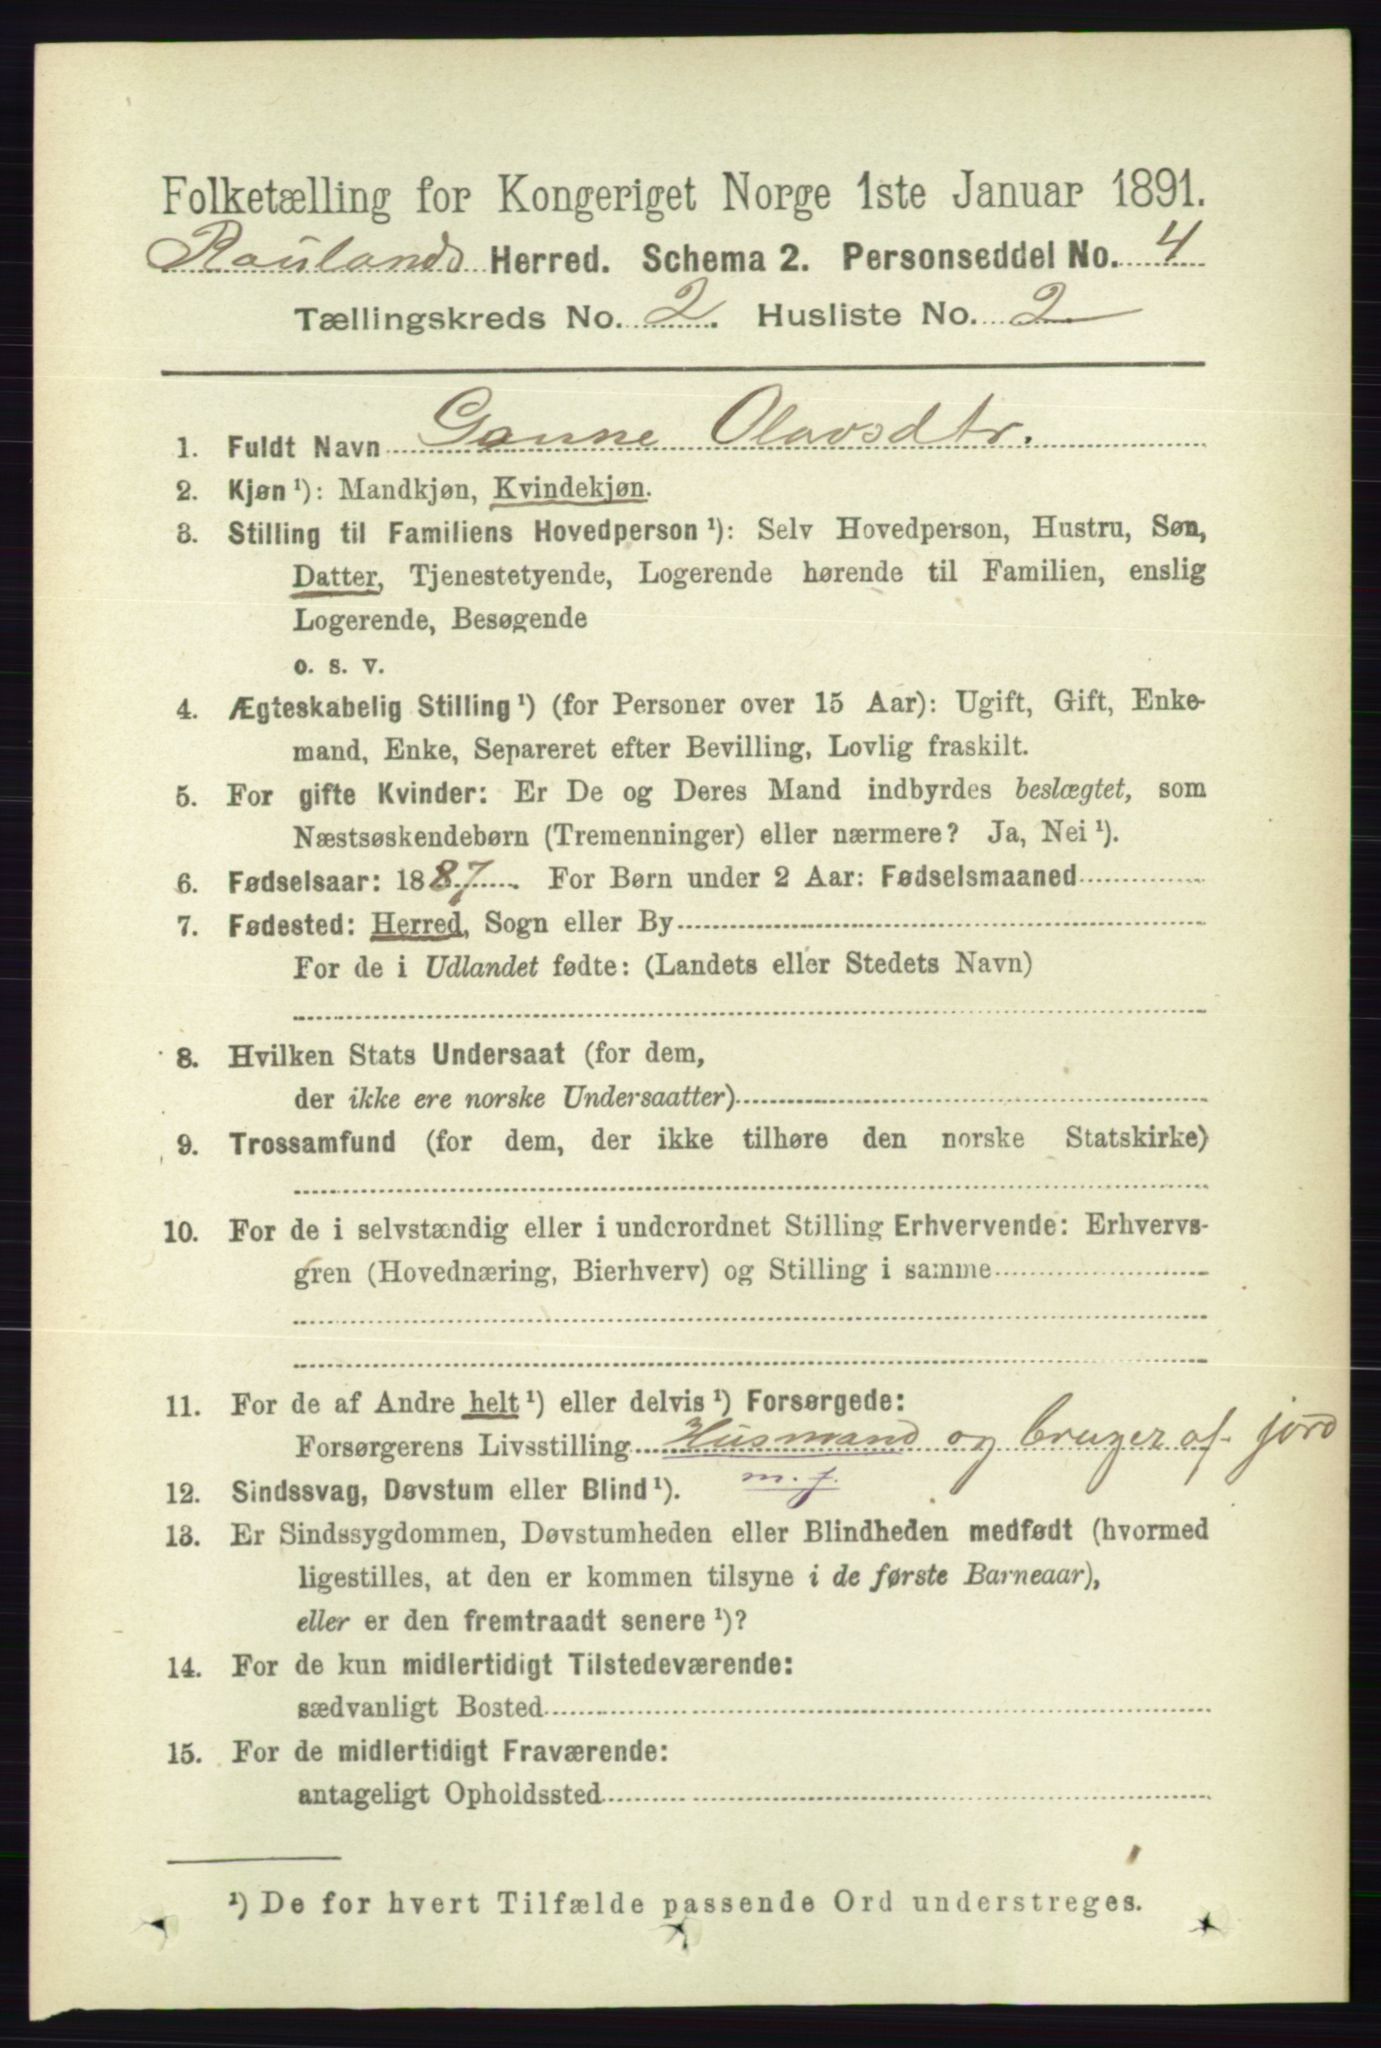 Folketælling for Kongeriget Norge 1ste Januar 1891.
Raulands Herred. Schema 2. Personseddel No. 4
Tællingskreds No. 2. Husliste No. 2
1. Fuldt Navn Gaune Olavsdtr.
2. Kjøn ¹): Mandkjøn, Kvindekjøn.
3. Stilling til Familiens Hovedperson ¹): Selv Hovedperson, Hustru, Søn,
Datter, Tjenestetyende, Logerende hørende til Familien, enslig
Logerende, Besøgende
o. s. v.
4. Ægteskabelig Stilling ¹) (for Personer over 15 Aar): Ugift, Gift, Enke-
mand, Enke, Separeret efter Bevilling, Lovlig fraskilt.
5. For gifte Kvinder: Er De og Deres Mand indbyrdes beslægtet, som
Næstsøskendebørn (Tremenninger) eller nærmere? Ja, Nei ¹).
6. Fødselsaar: 1887. For Børn under 2 Aar: Fødselsmaaned
7. Fødested: Herred, Sogn eller By
For de i Udlandet fødte: (Landets eller Stedets Navn)
8. Hvilken Stats Undersaat (for dem,
der ikke ere norske Undersaatter)
9. Trossamfund (for dem, der ikke tilhøre den norske Statskirke)
10. For de i selvstændig eller i underordnet Stilling Erhvervende: Erhvervs-
gren (Hovednæring, Bierhverv) og Stilling i samme
11. For de af Andre helt ¹) eller delvis ¹) Forsørgede:
Forsørgerens Livsstilling Husmand og bruger af jord
m. j.
12. Sindssvag, Døvstum eller Blind ¹).
13. Er Sindssygdommen, Døvstumheden eller Blindheden medfødt (hvormed
ligestilles, at den er kommen tilsyne i de første Barneaar),
eller er den fremtraadt senere ¹)?
14. For de kun midlertidigt Tilstedeværende:
sædvanligt Bosted
15. For de midlertidigt Fraværende:
antageligt Opholdssted
¹) De for hvert Tilfælde passende Ord understreges.